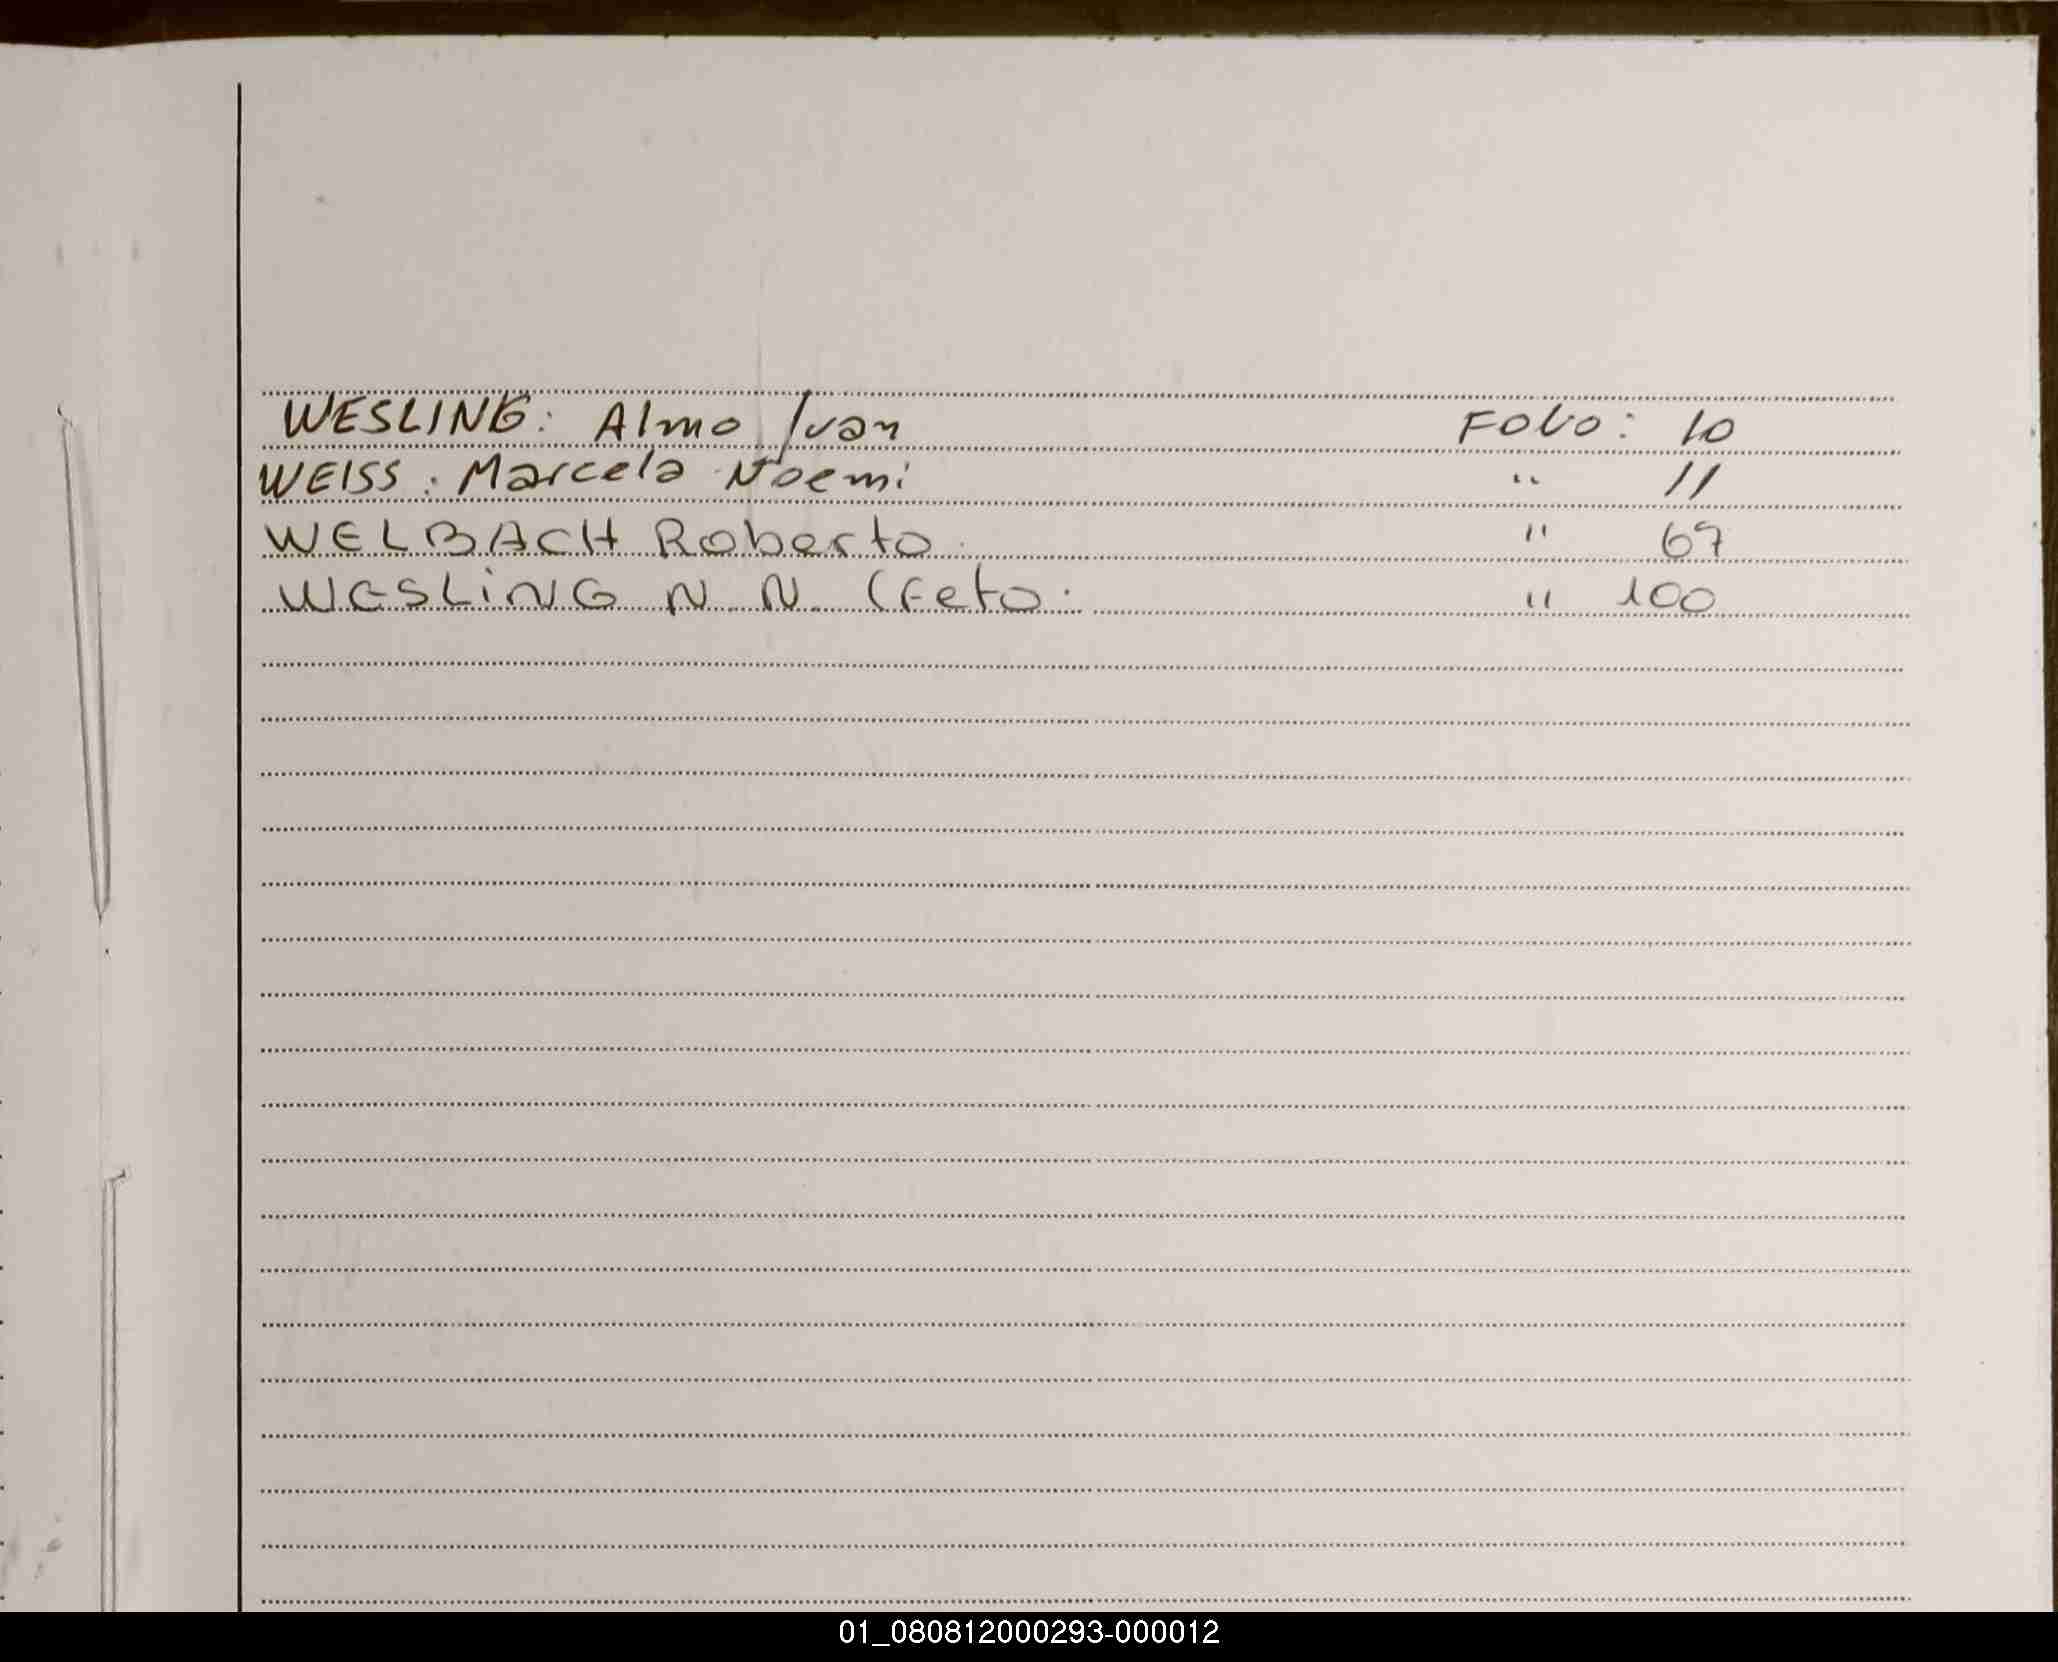 WESLING: Almo Ivan Folio: 10
WEISS: Marcela Noemi " 11
WELBACH Roberto. " 67
WESLiNG N N (Feto. " 100
01_080812000293-000012